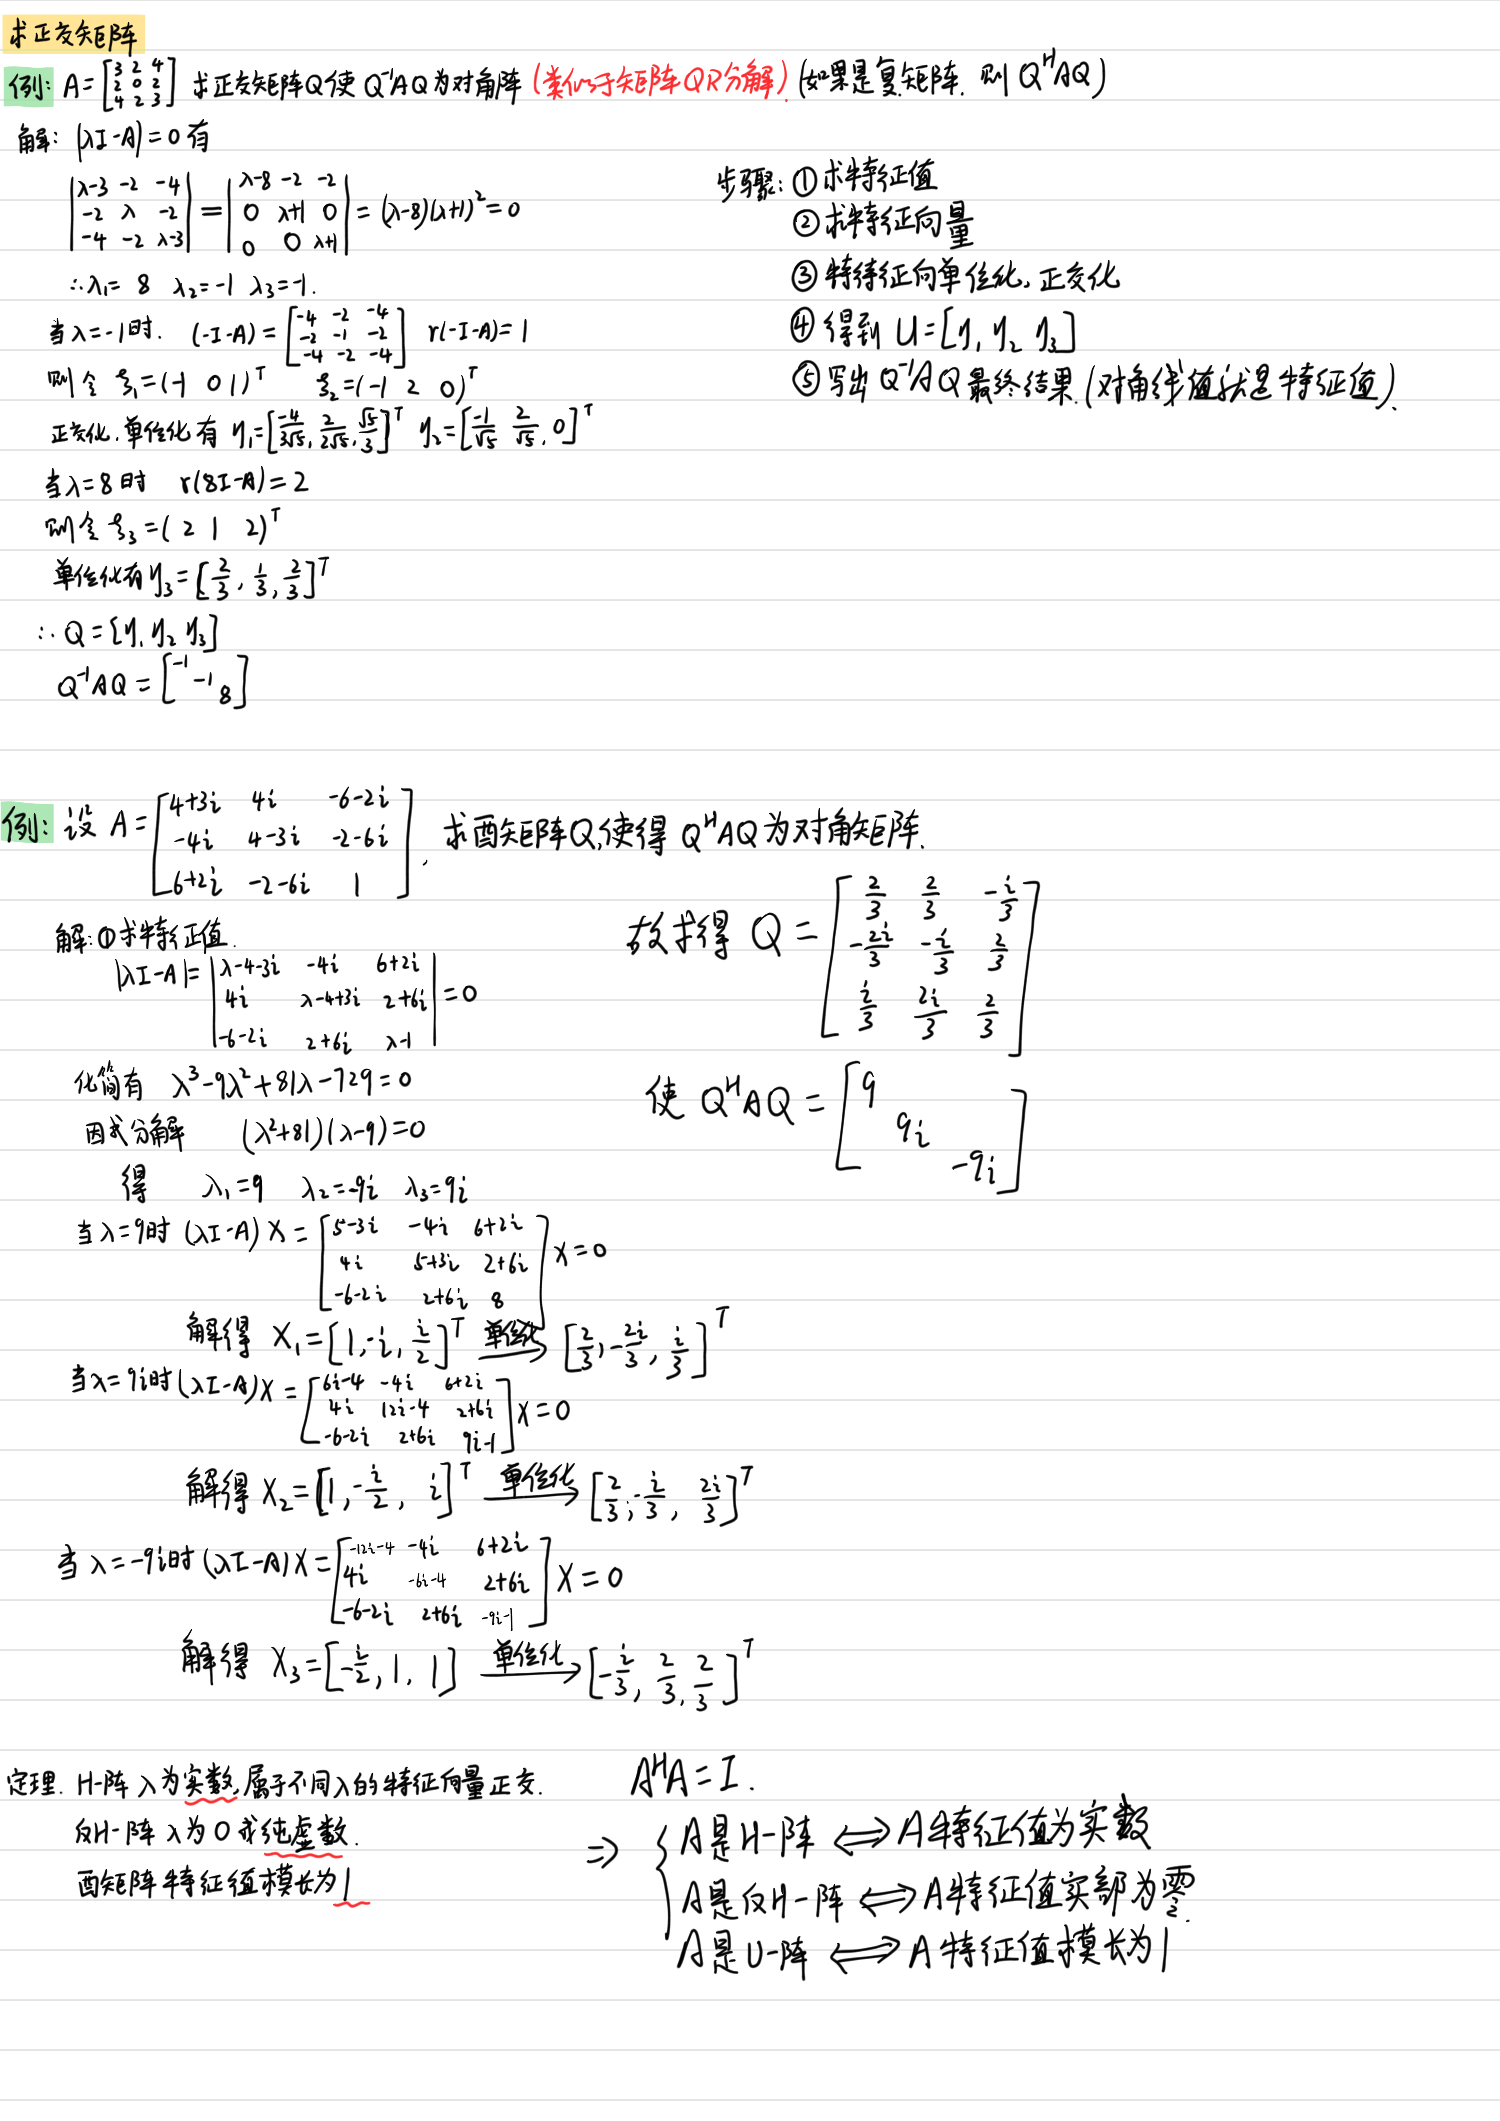 求正交矩阵
例: A = [3 2 4; 2 0 2; 4 2 3] 求正交矩阵Q使 Q⁻¹AQ为对角阵 (类似于矩阵QR分解) (如果是复矩阵. 则 QᴴAQ)
解: |λI-A|=0 有
|λ-3 -2 -4; -2 λ -2; -4 -2 λ-3| = |λ-8 -2 -2; 0 λ+1 0; 0 0 λ+1| = (λ-8)(λ+1)² = 0
∴ λ₁= 8 λ₂=-1 λ₃=-1.
当λ=-1时. (-I-A) = [-4 -2 -4; -2 -1 -2; -4 -2 -4] r(-I-A)=1
则令 ξ₁=(-1 0 1)ᵀ ξ₂=(-1 2 0)ᵀ
正交化.单位化有 η₁=[-4/3√5, 2/2√5, √5/3]ᵀ η₂=[-1/√5 2/√5, 0]ᵀ
当λ=8时 r(8I-A)=2
则令 ξ₃=(2 1 2)ᵀ
单位化有 η₃=[2/3, 1/3, 2/3]ᵀ
∴ Q=[η₁ η₂ η₃]
Q⁻¹AQ = [-1 -1 8]
步骤: ①求特征值
②求特征向量
③特待征向单位化, 正交化
④得到 U=[η₁ η₂ η₃]
⑤写出 Q⁻¹AQ 最终结果.(对角线值就是特征值).
例: 设 A = [4+3i 4i -6-2i; -4i 4-3i -2-6i; 6+2i -2-6i 1], 求酉矩阵Q,使得 QᴴAQ为对角矩阵.
解: ①求特征值.
|λI-A| = |λ-4-3i -4i 6+2i; 4i λ-4+3i 2+6i; -6-2i 2+6i λ-1| = 0
化简有 λ³-9λ²+81λ-729=0
因式分解 (λ²+81)(λ-9)=0
得 λ₁=9 λ₂=-9i λ₃=9i
当λ=9时 (λI-A)X = [5-3i -4i 6+2i; 4i 5+3i 2+6i; -6-2i 2+6i 8] X=0
解得 X₁=[1,-i, i/2]ᵀ 单位化→ [2/3, -2i/3, i/3]ᵀ
当λ=9i时 (λI-A)X = [6i-4 -4i 6+2i; 4i 12i-4 2+6i; -6-2i 2+6i 9i-1] X=0
解得 X₂=[1, -i/2, i]ᵀ 单位化→ [2/3, -i/3, 2i/3]ᵀ
当 λ=-9i时 (λI-A)X = [-12i-4 -4i 6+2i; 4i -6i-4 2+6i; -6-2i 2+6i -9i-1] X=0
解得 X₃=[-i/2, 1, 1] 单位化→ [-i/3, 2/3, 2/3]ᵀ
故求得 Q = [2/3 2/3 -i/3; -2i/3 -i/3 2/3; i/3 2i/3 2/3]
使 QᴴAQ = [9 9i -9i]
定理. H-阵 λ为实数,属于不同λ的特征向量正交.
反H-阵 λ为0或纯虚数.
酉矩阵特征值模长为1
AᴴA=I.
⇒ { A是H-阵 ⟺ A特征值为实数
A是反H-阵 ⟺ A特征值实部为零.
A是U-阵 ⟺ A特征值模长为1